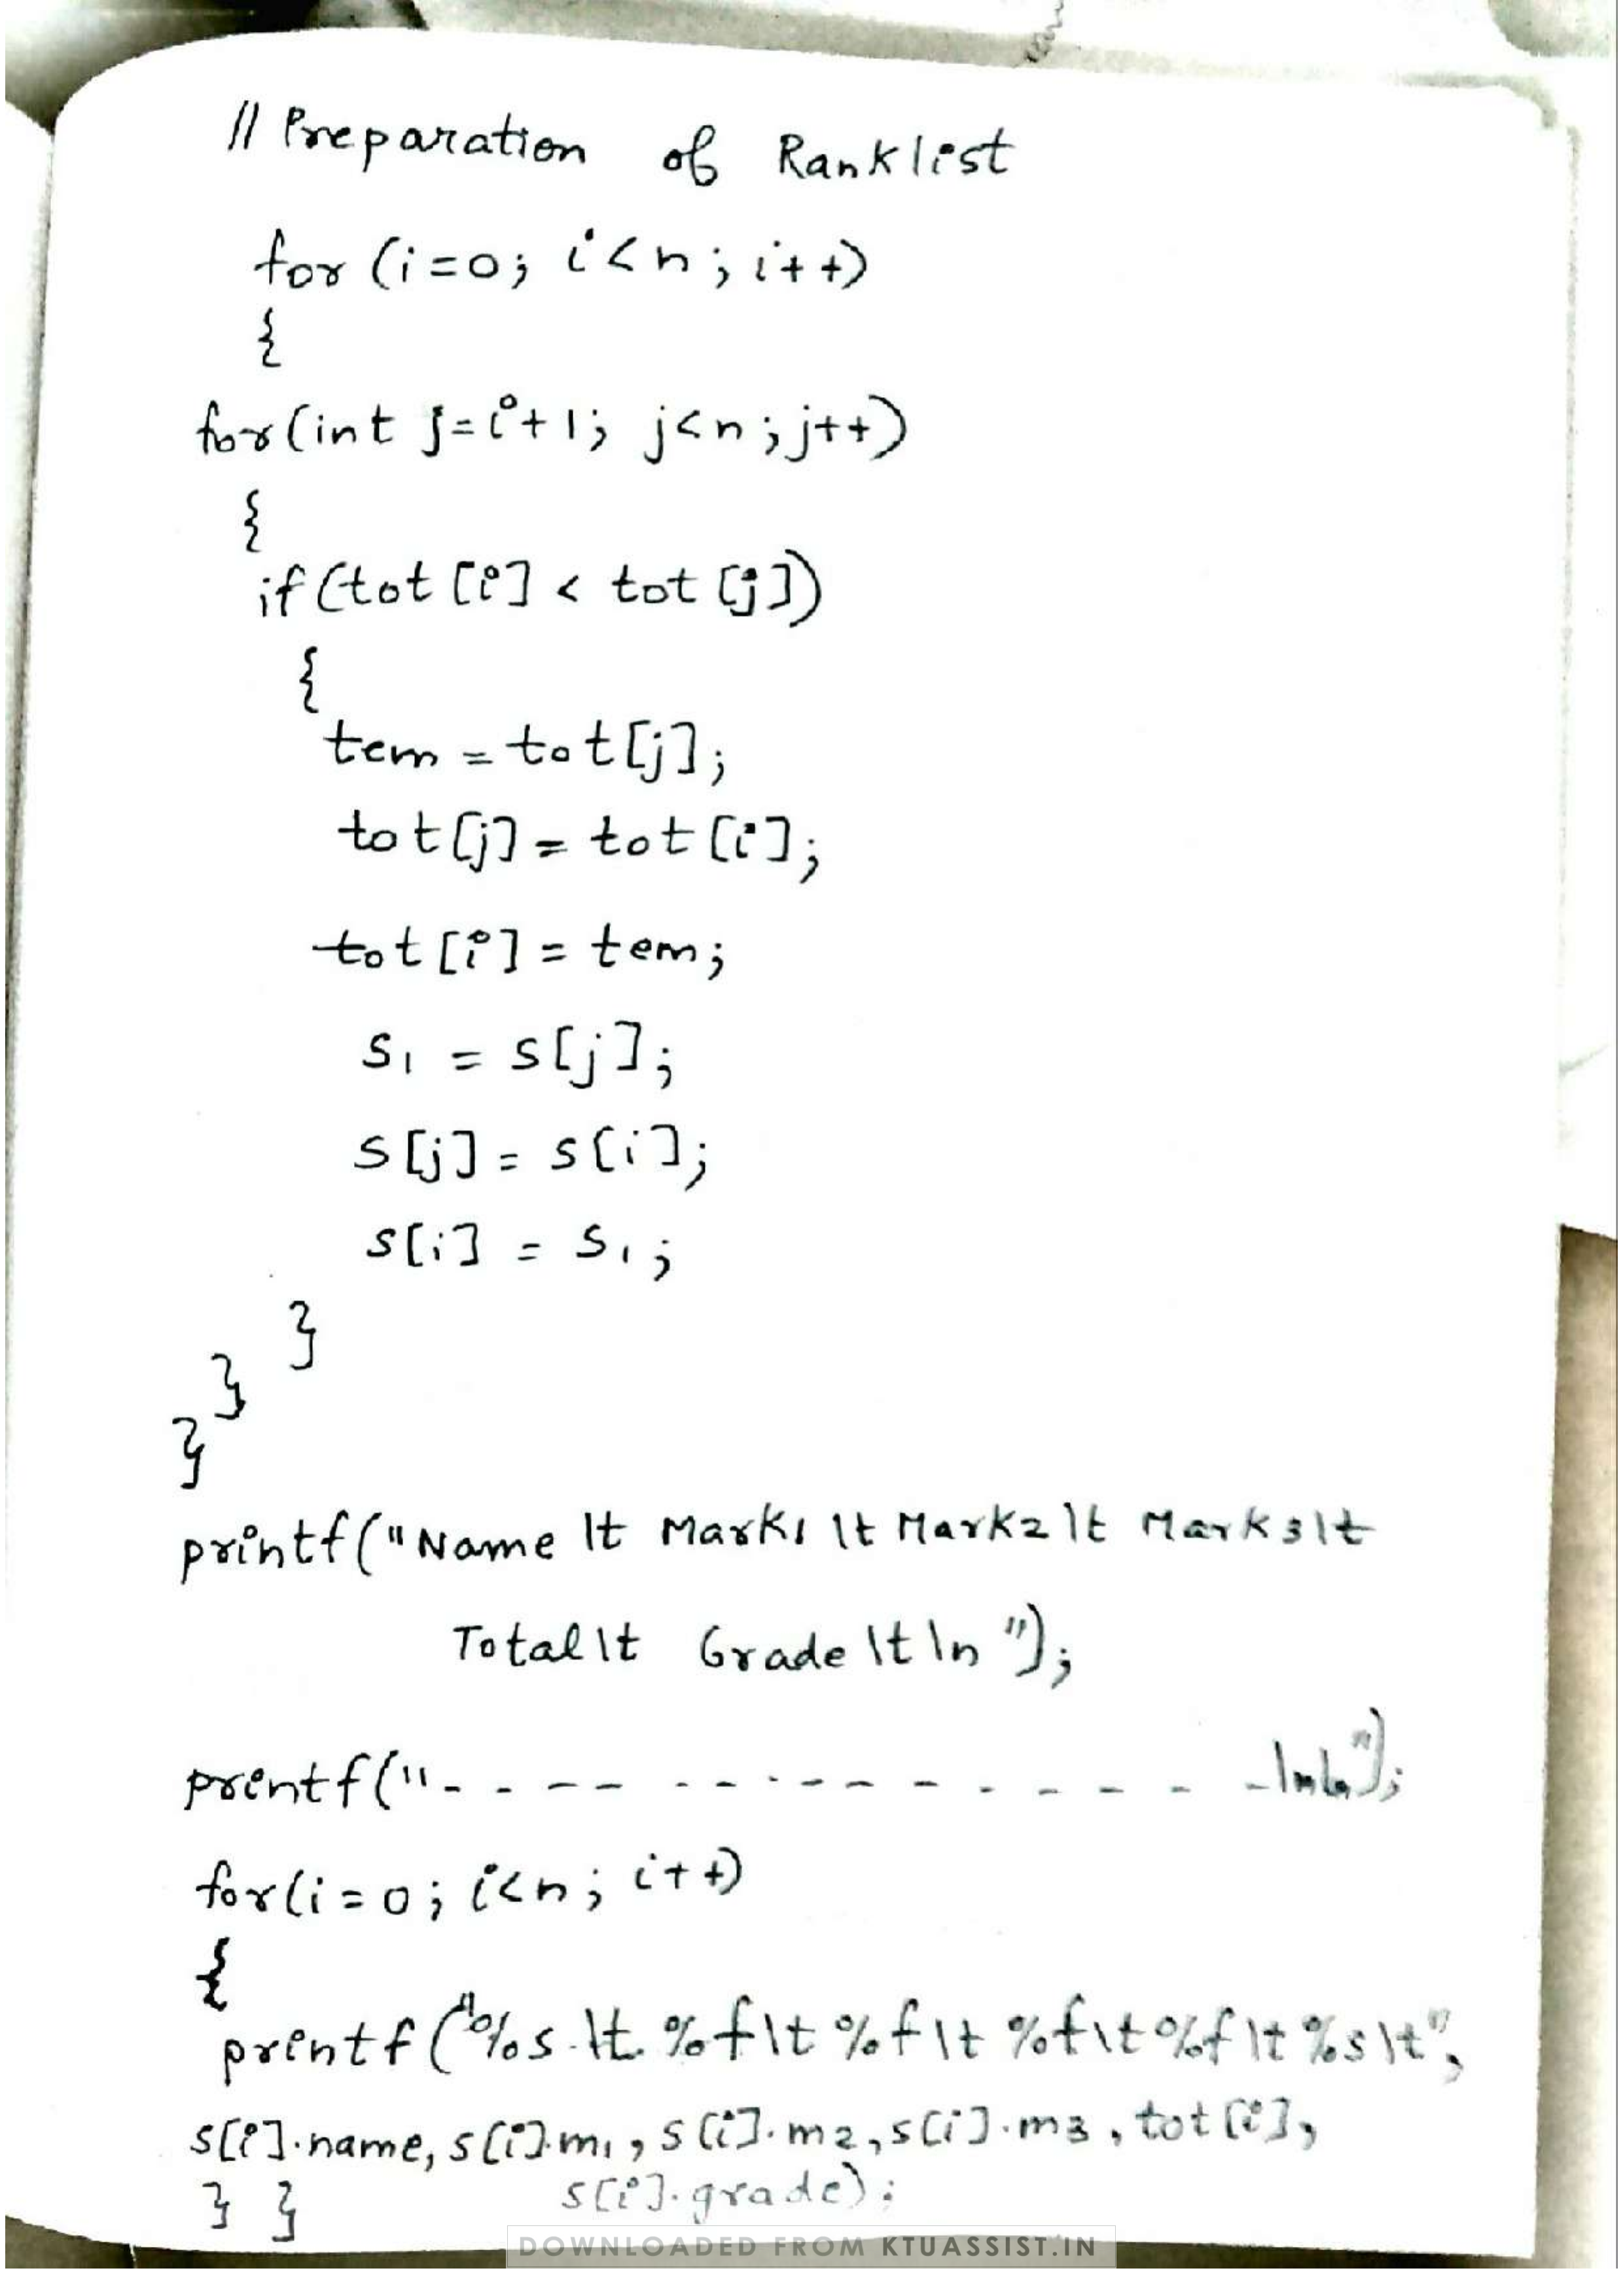 // Preparation of Ranklist
for (i=0; i<n; i++)
{
for(int j=i+1; j<n; j++)
{
if(tot[i] < tot[j])
{
tem = tot[j];
tot[j] = tot[i];
tot[i] = tem;
s1 = s[j];
s[j] = s[i];
s[i] = s1;
}
}
}
printf("Name \t Mark1 \t Mark2 \t Mark3 \t
Total \t Grade \t \n ");
printf("- - - - - - - - - - - - - - - - \n\n");
for(i=0; i<n; i++)
{
printf("%s \t %f \t %f \t %f \t %f \t %s \t",
s[i].name, s[i].m1, s[i].m2, s[i].m3, tot[i],
} } s[i].grade);
DOWNLOADED FROM KTUASSIST.IN